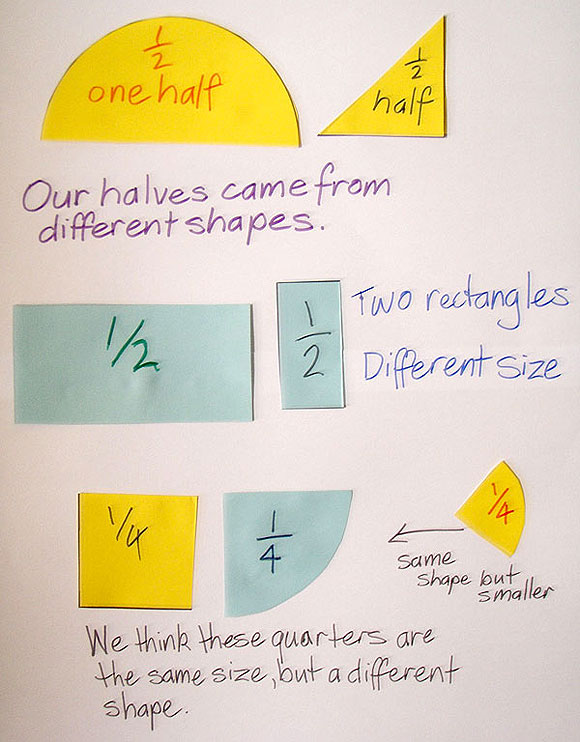 1/2
one half
1/2
half
Our halves came from
different shapes.
1/2
1
2
Two rectangles
Different size
1/4
1
4
1/4
same
shape but
smaller
We think these quarters are
the same size, but a different
shape.